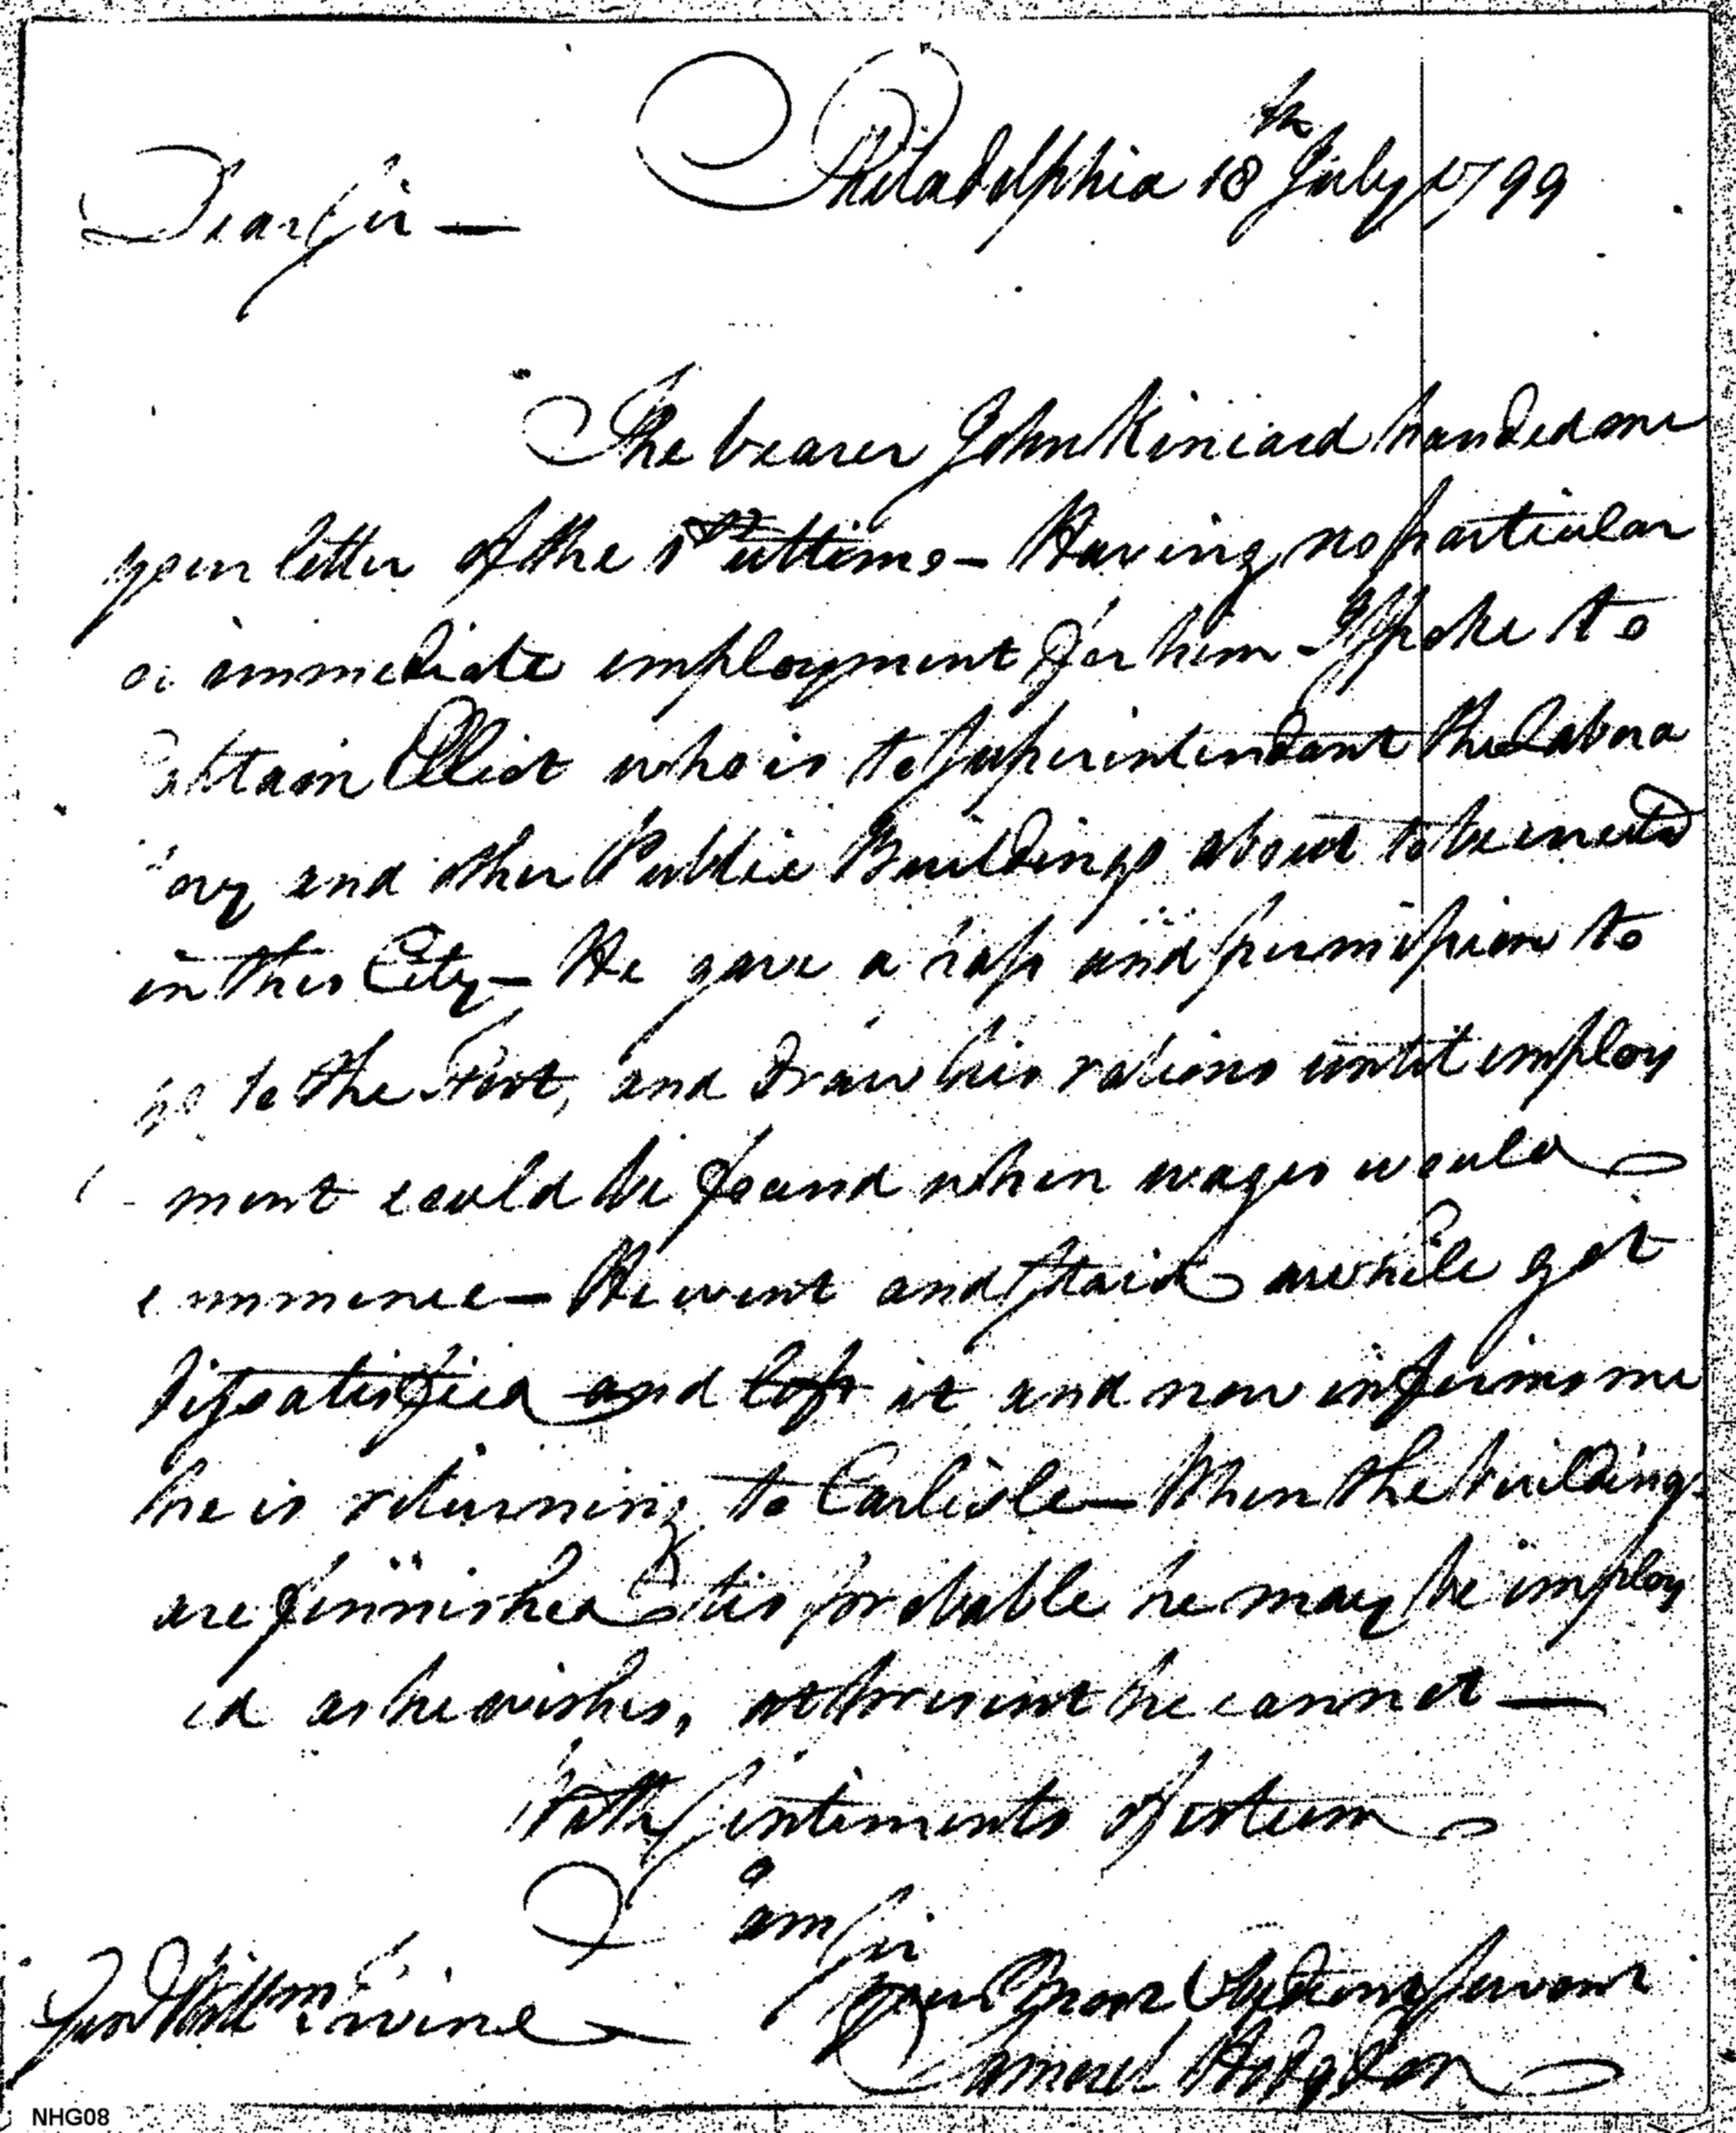 Philadelphia 18th July 1799
Dear Sir —
The bearer John Kinciard handed me
your letter of the ultimo — Having no particular
or immediate employment for him I spoke to
Captain Elliot who is to Superintendant the Labora
tory and other Public Buildings about to be erected
in this City — He gave a pass and permission to
go to the Fort, and draw his rations until employ
ment could be found when wages would
commence — He went and staid awhile got
dissatisfied and left it and now informs me
he is returning to Carlisle — When the buildings
are finnished tis probable he may be employ
ed as he wishes, at present he cannot —
With Sentiments of esteem
I am Sir
your Obedient Servant
Genl Willm Irvine
Samuel Hodgdon
NHG08